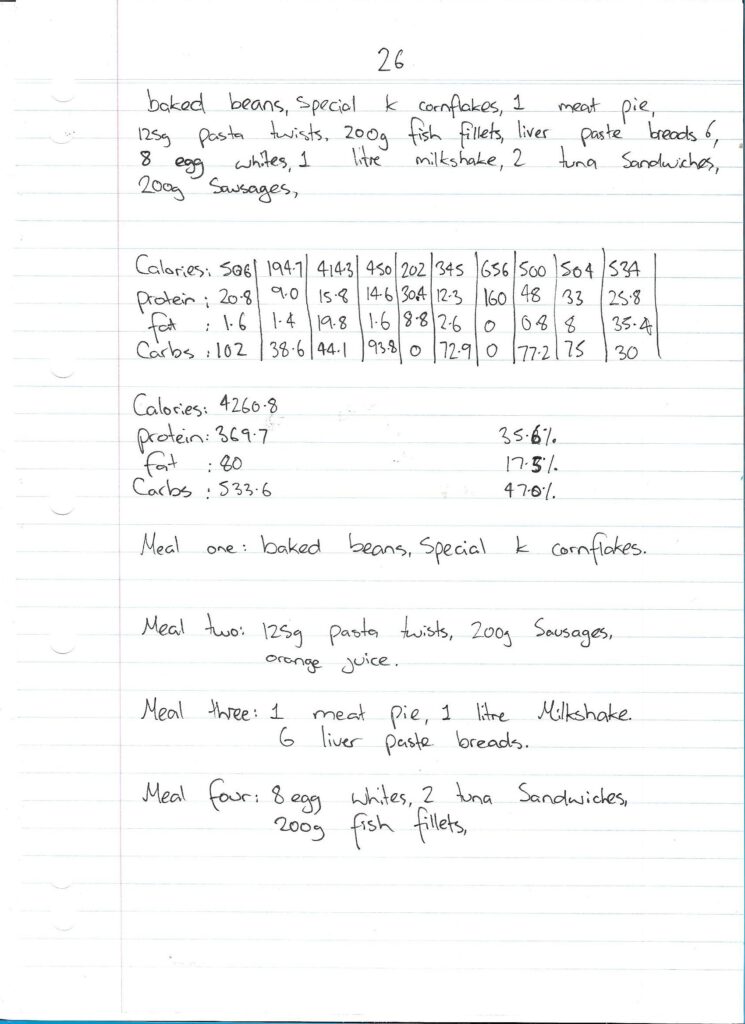 26
baked beans, Special k cornflakes, 1 meat pie,
125g pasta twists, 200g fish fillets, liver paste breads 6,
8 egg whites, 1 litre milkshake, 2 tuna Sandwiches,
200g Sausages,
Calories: 506 | 194.7 | 414.3 | 450 | 202 | 345 | 656 | 500 | 504 | 534
protein : 20.8 | 9.0 | 15.8 | 14.6 | 30.4 | 12.3 | 160 | 48 | 33 | 25.8
fat : 1.6 | 1.4 | 19.8 | 1.6 | 8.8 | 2.6 | 0 | 0.8 | 8 | 35.4
Carbs : 102 | 38.6 | 44.1 | 93.8 | 0 | 72.9 | 0 | 77.2 | 75 | 30
Calories: 4260.8
protein: 369.7 35.6%
fat : 80 17.5%
Carbs : 533.6 47.0%
Meal one: baked beans, Special k cornflakes.
Meal two: 125g pasta twists, 200g Sausages,
orange juice.
Meal three: 1 meat pie, 1 litre Milkshake.
6 liver paste breads.
Meal four: 8 egg whites, 2 tuna Sandwiches,
200g fish fillets,